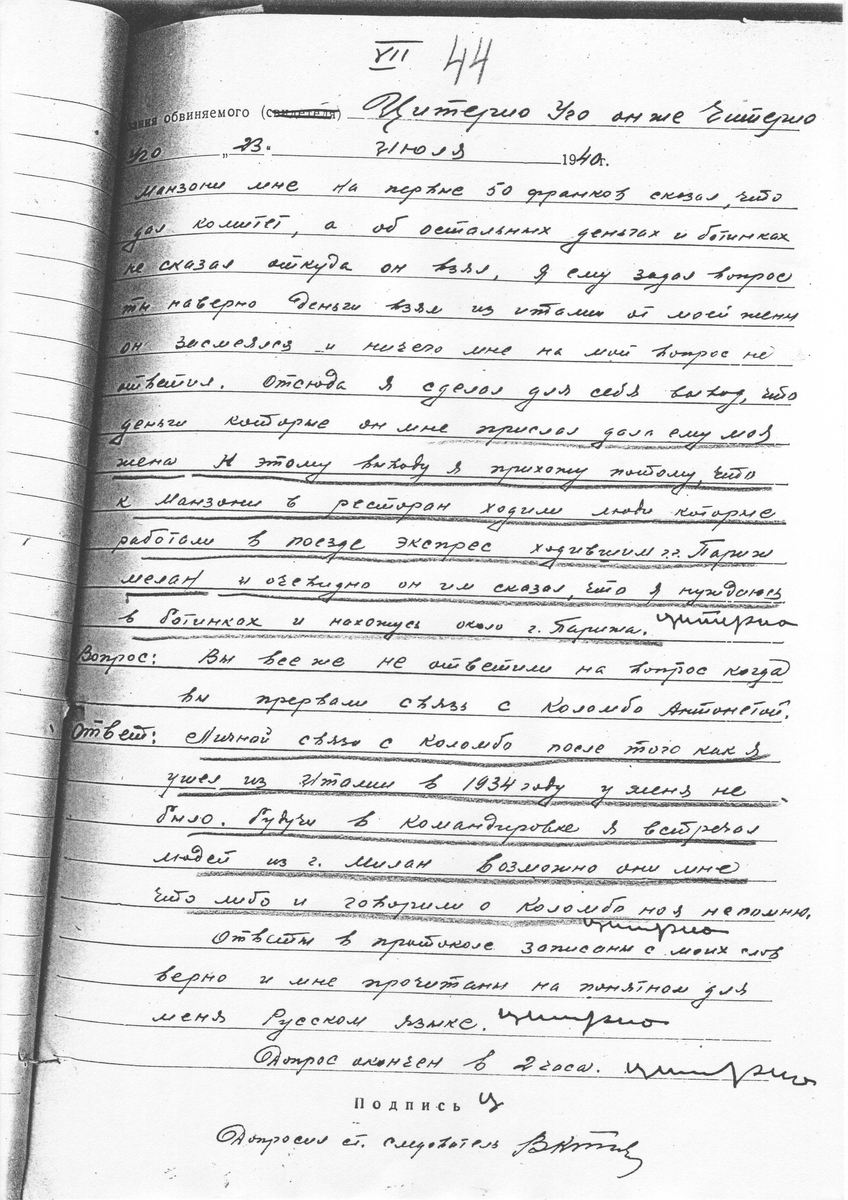 VII 44
зания обвиняемого (свидетеля) Цитерио Уго он же Читерио
Уго „23“ Июля 1940г.
Манзони мне на первые 50 франков сказал, что
дал комитет, а об остальных деньгах и ботинках
не сказал откуда он взял. Я ему задал вопрос
ты наверно деньги взял из италии от моей жены
он засмеялся и ничего мне на мой вопрос не
ответил. Отсюда я сделал для себя вывод, что
деньги которые он мне прислал дала ему моя
жена К этому выводу я прихожу потому, что
к Манзони в ресторан ходили люди которые
работали в поезде экспрес ходившим г.г. Париж
мелан и очевидно он им сказал, что я нуждаюсь
в ботинках и нахожусь около г. Парижа. Цитерио
Вопрос: Вы все же не ответили на вопрос когда
вы прервали связь с Коломбо Антонетой.
Ответ: Личной связи с Коломбо после того как я
ушел из Италии в 1934 году у меня не
было. Будучи в командировке я встречал
людей из г. Милан возможно они мне
что либо и говорили о Коломбо но я непомню.
Цитерио
Ответы в протоколе записаны с моих слов
верно и мне прочитаны на понятном для
меня Русском языке. Цитерио
Допрос окончен в 2 часа. Цитерио
Подпись Ц
Допросил ст. следователь